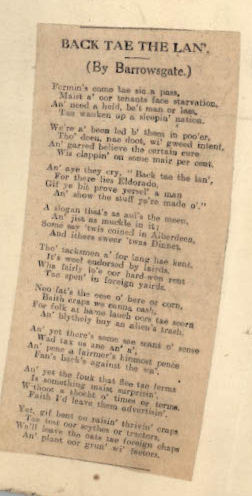 BACK TAE THE LAN'.
(By Barrowsgate.)
Fermin's come tae sic a pass,
Maist a' oor tenants face starvation,
An' need a heid, be't man or lass,
Tae wauken up a sleepin' nation.
We're a' been led b' them in poo'er,
Tho' deen, nae doot, wi' gweed intent,
An' garred believe the certain cure
Wis clappin' on some mair per cent.
An' aye they cry, "Back tae the lan',
For there lies Eldorado,
Gif ye bit prove yersel' a man
An' show the stuff ye're made o'."
A slogan that's as aul's the meen,
An' jist as muckle in it;
Some say 'twis coined in Aiberdeen,
And ithers sweer 'twas Dinnet.
Tho' tacksmen a' for lang hae kent,
It's weel endorsed by lairds,
Wha fairly lo'e oor hard-won rent
Tae spen' in foreign yairds.
Noo fat's the eese o' bere or corn,
Baith craps we canna cash,
For folk at hame laugh oors tae scorn
An' blythely buy an alien's trash.
An' yet there's some sae scant o' sense
Wad tax us ane an' a',
An' pouch a fairmer's hinmost pence
Fan's back's against the wa'.
An' yet the fouk that flee tae ferms
Is something maist surprisin',
Without a thocht o' times or terms.
Faith I'd leave them advertisin'.
Yet, gif bent on raisin' thrivin' craps
Tae test oor scythes or tractors,
We'll leave the oats tae foreign chaps
An' plant oor grun' wi' factors.